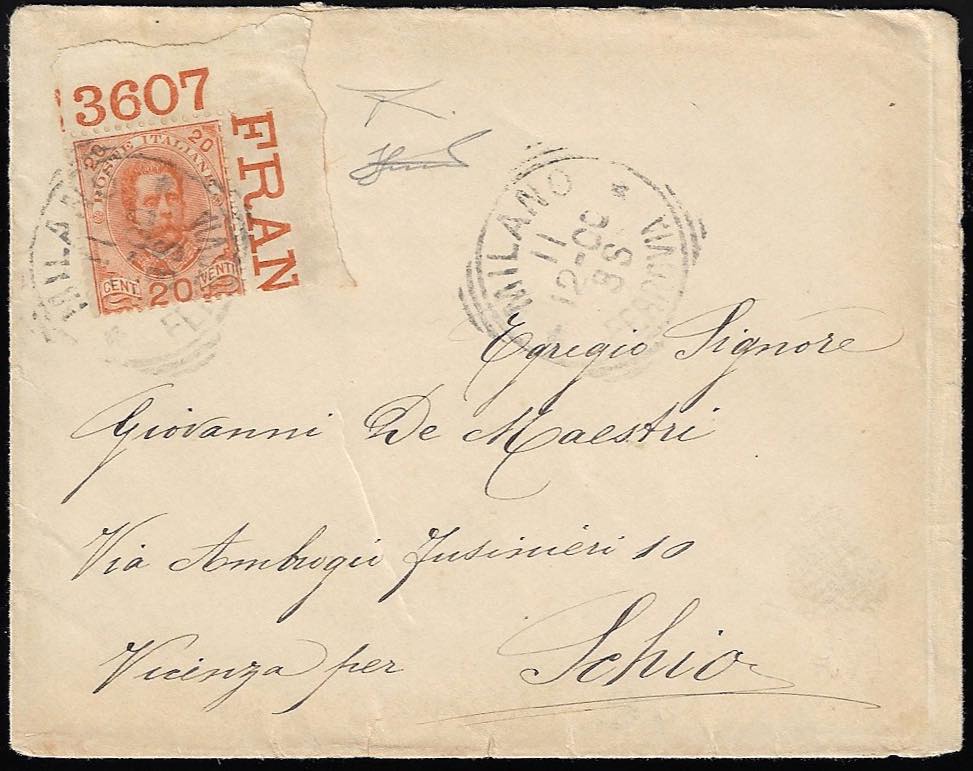 3607
FRAN
20 20
POSTE ITALIANE
CENT. 20 VENTI
MILANO
FERROVIA
MILANO
11
12-OC
FERROVIA
Egregio Signore
Giovanni De Maestri
Via Ambrogio Fusinieri 10
Vicenza per Schio